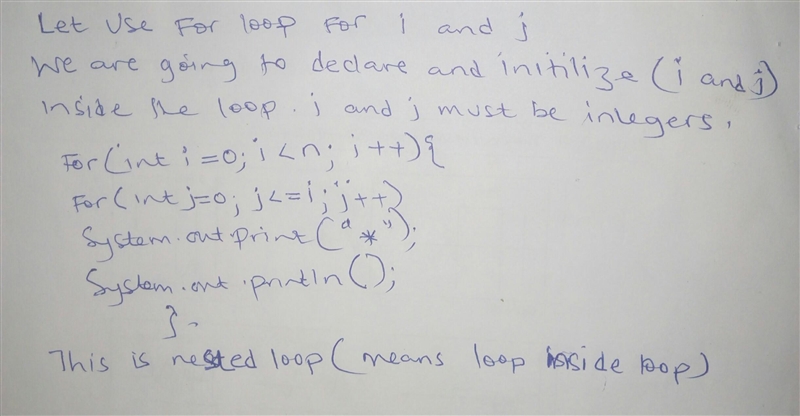 Let Use For loop For i and j
We are going to declare and initilize (i and j)
inside the loop. i and j must be integers.
For(int i=0; i<n; i++){
For(int j=0; j<=i; j++)
System.out.print("*");
System.out.println();
}.
This is nested loop (means loop inside loop)